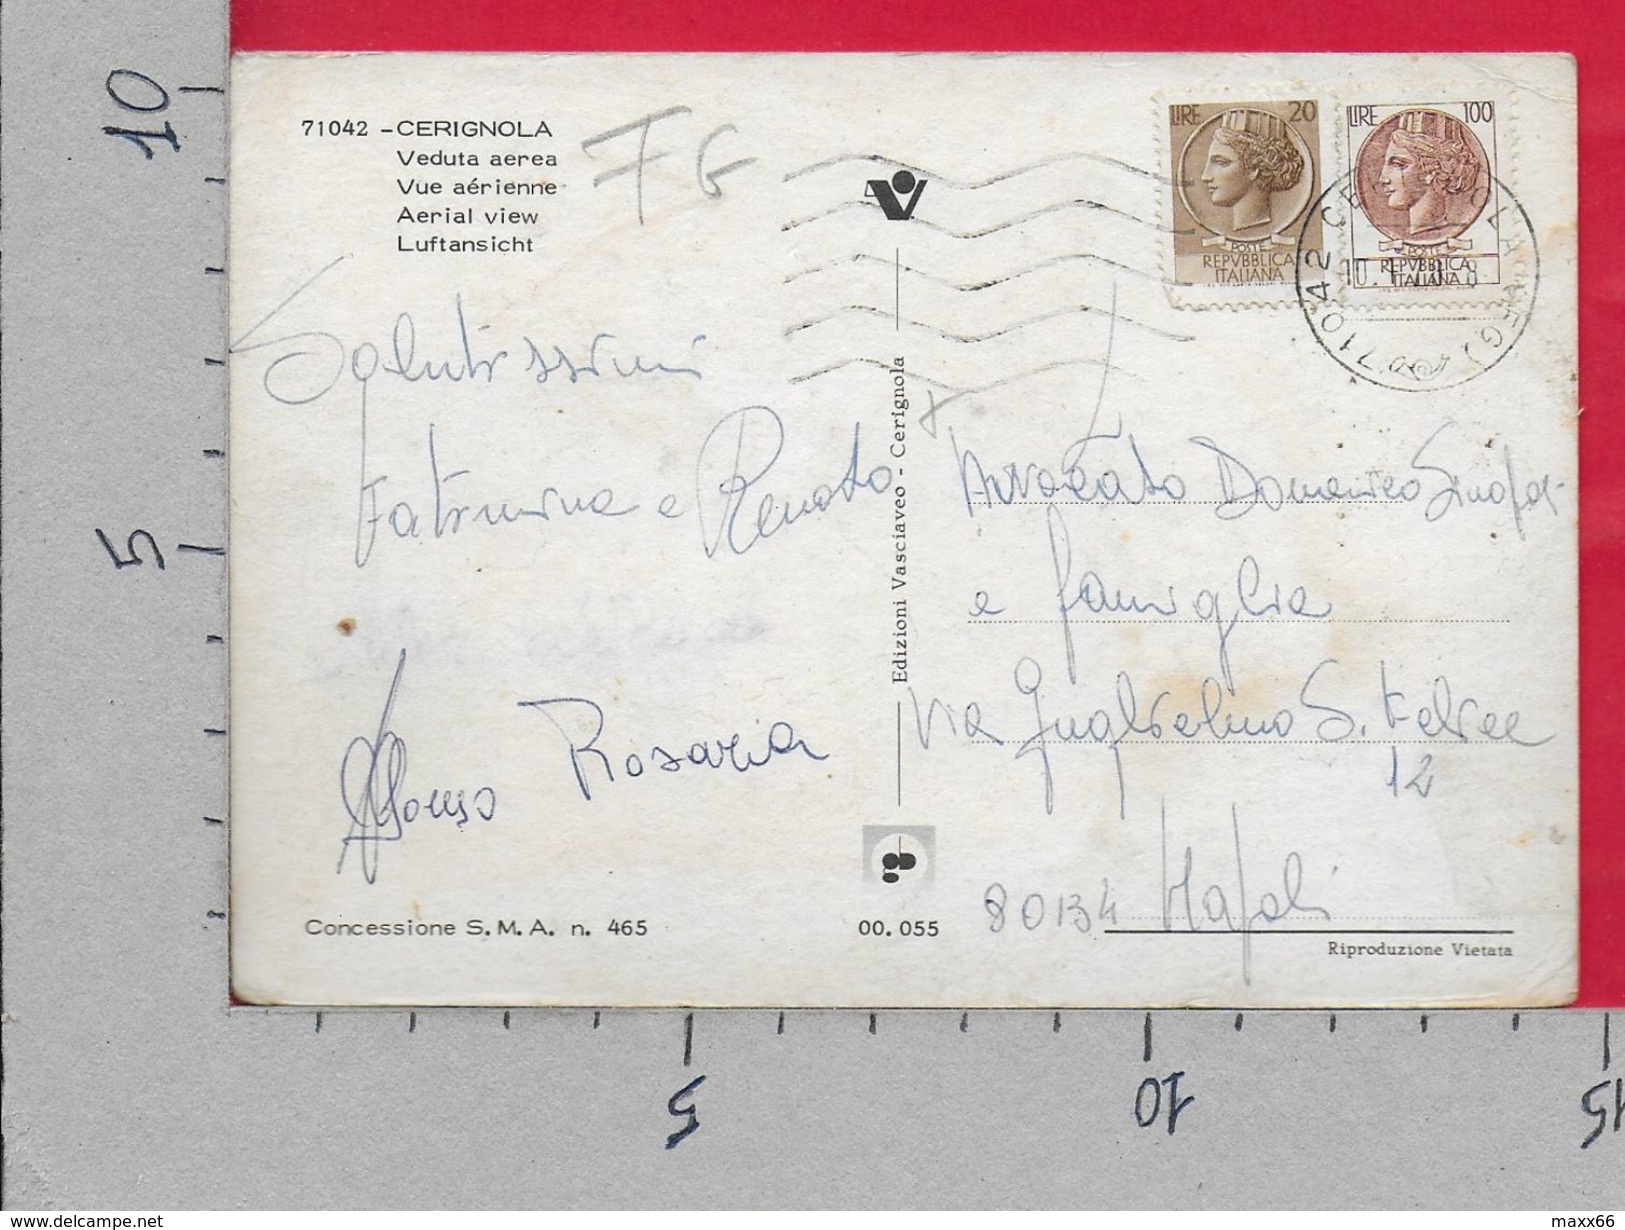 71042 - CERIGNOLA
Veduta aerea
Vue aérienne
Aerial view
Luftansicht
FG
LIRE 20
POSTE
REPVBBLICA
ITALIANA
LIRE 100
POSTE
REPVBBLICA
ITALIANA
71042
Salutissimi
e Renato
Alfonso
Rosaria
Edizioni Vasciaveo - Cerignola
Avvocato Domenico
e famiglia
Via Guglielmo S. Felice
12
80134 Napoli
Concessione S. M. A. n. 465
00. 055
Riproduzione Vietata
10
5
5
10
15
www.delcampe.net
maxx66